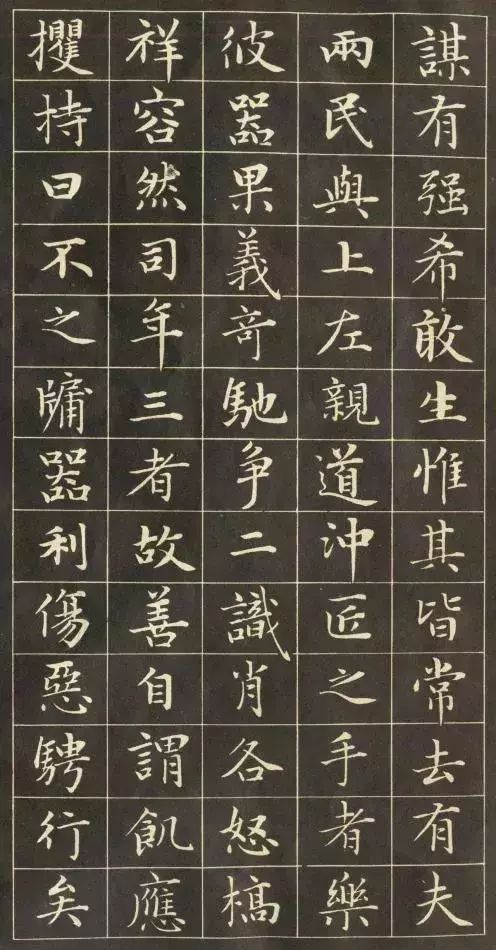 謀有强希敢生惟其皆常去有夫
兩民與上左親道沖匠之手者樂
彼器果義奇馳争二識肖各怒槁
祥容然司年三者故善自謂飢應
攫持曰不之牗器利傷惡騁行矣